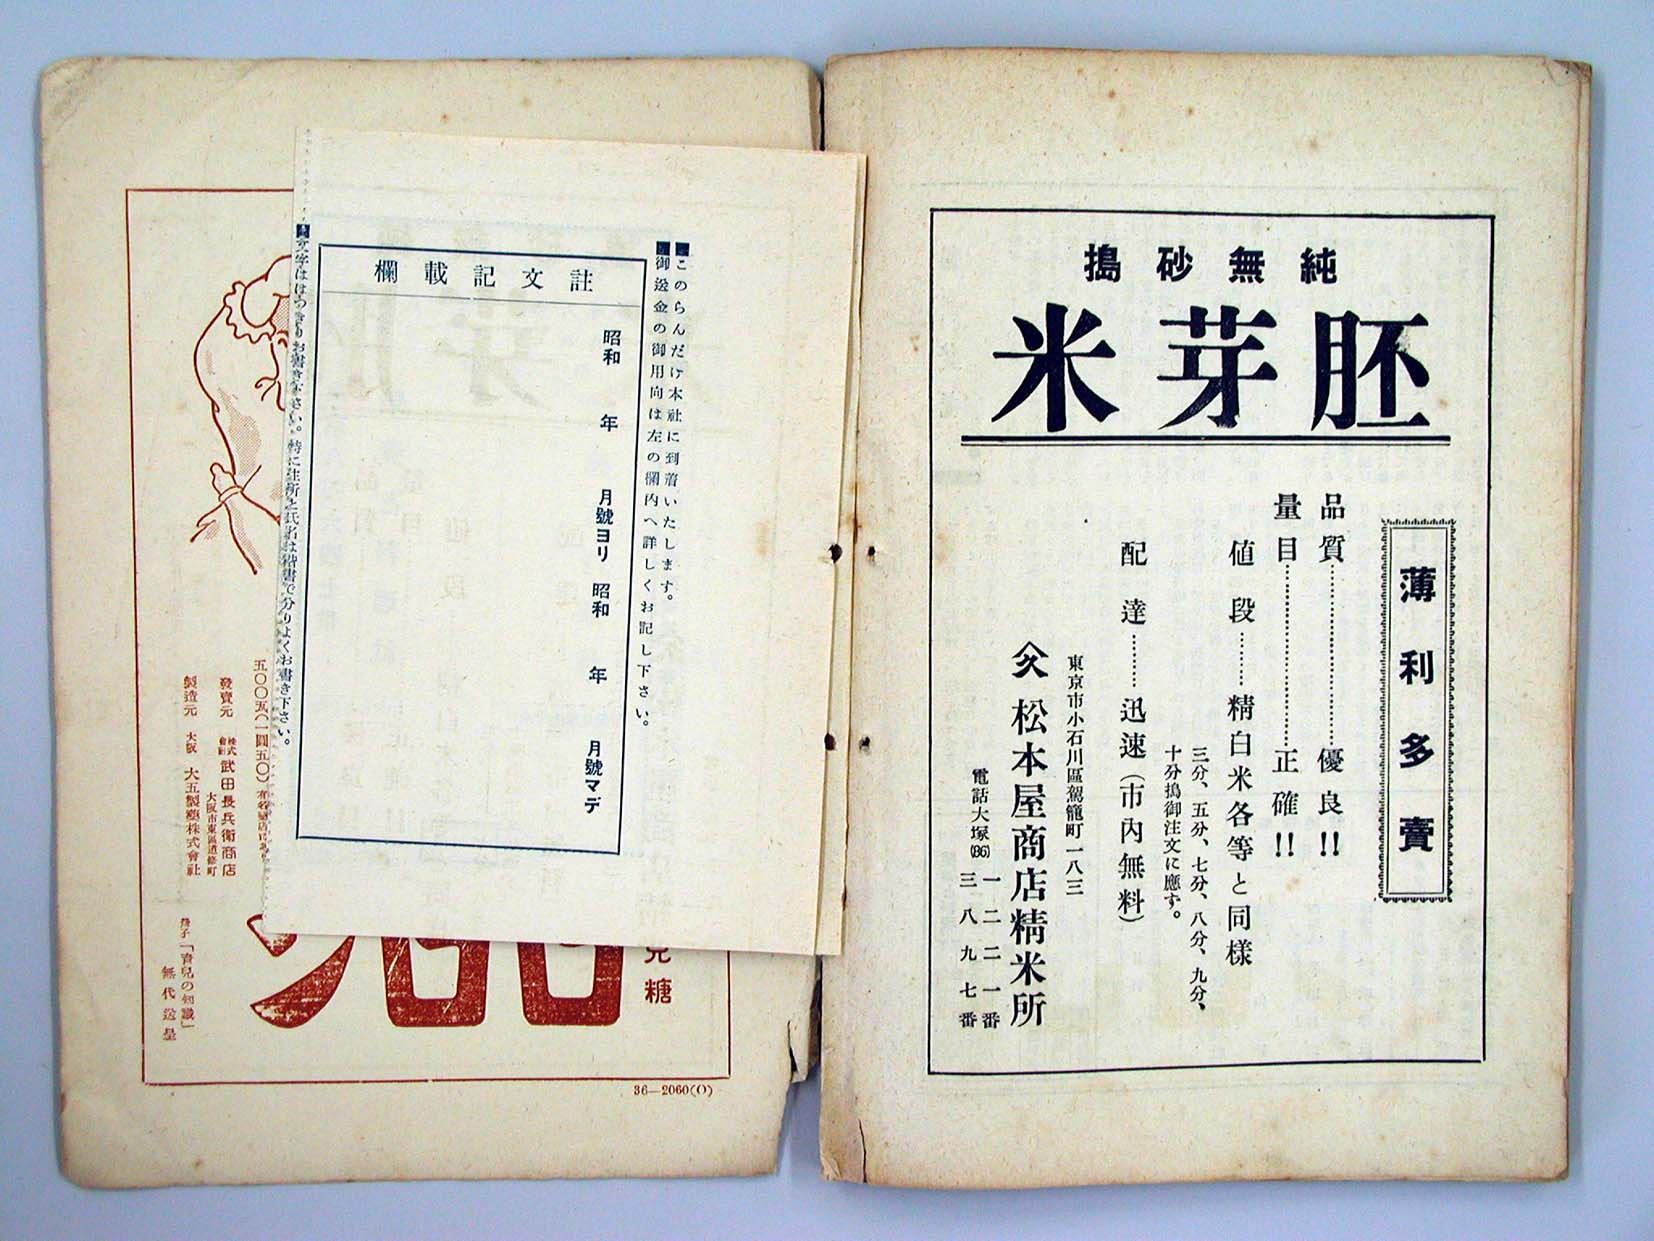 純無砂搗
胚芽米
薄利多賣
品質…………………優良!!
量目…………………正確!!
値段………精白米各等と同樣
三分、五分、七分、八分、九分、
十分搗御注文に應ず。
配達………迅速(市内無料)
東京市小石川區駕籠町一八三
松本屋商店精米所
電話大塚(86)
一二二一番
三八九七番
このらんだけ本社に到着いたします。
御送金の御用向は左の欄内へ詳しくお記し下さい。
註文記載欄
昭和 年 月號ヨリ
昭和 年 月號マデ
文字ははつきりお書き下さい。特に住所と氏名は楷書で分りよくお書き下さい。
兒糖
五〇〇瓦(一圓五〇)
發賣元 株式會社 武田長兵衛商店
大阪市東區道修町
製造元 大阪 大五製藥株式會社
冊子「育兒の知識」
無代送呈
36—2060(O)